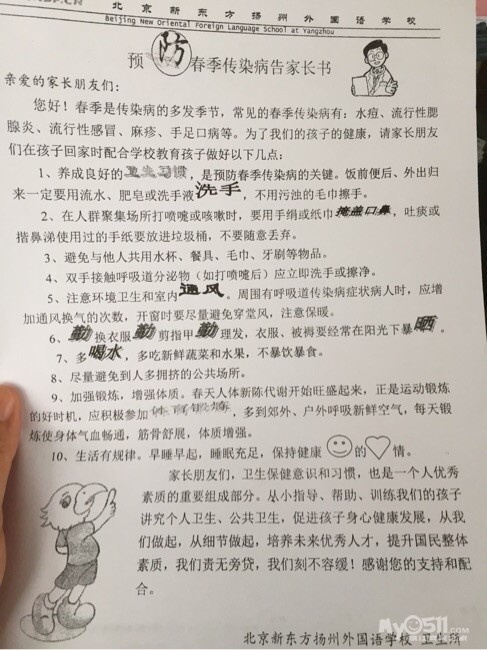 北京新东方扬州外国语学校
Beijing New Oriental Foreign Language School at Yangzhou
预防春季传染病告家长书
亲爱的家长朋友们：
您好！春季是传染病的多发季节，常见的春季传染病有：水痘、流行性腮
腺炎、流行性感冒、麻疹、手足口病等。为了我们的孩子的健康，请家长朋友
们在孩子回家时配合学校教育孩子做好以下几点：
1、养成良好的卫生习惯，是预防春季传染病的关键。饭前便后、外出归
来一定要用流水、肥皂或洗手液洗手，不用污浊的毛巾擦手。
2、在人群聚集场所打喷嚏或咳嗽时，要用手绢或纸巾掩盖口鼻，吐痰或
揩鼻涕使用过的手纸要放进垃圾桶，不要随意丢弃。
3、避免与他人共用水杯、餐具、毛巾、牙刷等物品。
4、双手接触呼吸道分泌物（如打喷嚏后）应立即洗手或擦净。
5、注意环境卫生和室内通风。周围有呼吸道传染病症状病人时，应增
加通风换气的次数，开窗时要尽量避免穿堂风，注意保暖。
6、勤换衣服勤剪指甲勤理发，衣服、被褥要经常在阳光下暴晒。
7、多喝水，多吃新鲜蔬菜和水果，不暴饮暴食。
8、尽量避免到人多拥挤的公共场所。
9、加强锻炼，增强体质。春天人体新陈代谢开始旺盛起来，正是运动锻炼
的好时机，应积极参加体育锻炼，多到郊外、户外呼吸新鲜空气，每天锻
炼使身体气血畅通，筋骨舒展，体质增强。
10、生活有规律。早睡早起，睡眠充足，保持健康的情。
家长朋友们，卫生保健意识和习惯，也是一个人优秀
素质的重要组成部分。从小指导、帮助、训练我们的孩子
讲究个人卫生、公共卫生，促进孩子身心健康发展，从我
们做起，从细节做起，培养未来优秀人才，提升国民整体
素质，我们责无旁贷，我们刻不容缓！感谢您的支持和配
合。
北京新东方扬州外国语学校 卫生所
My0511.com